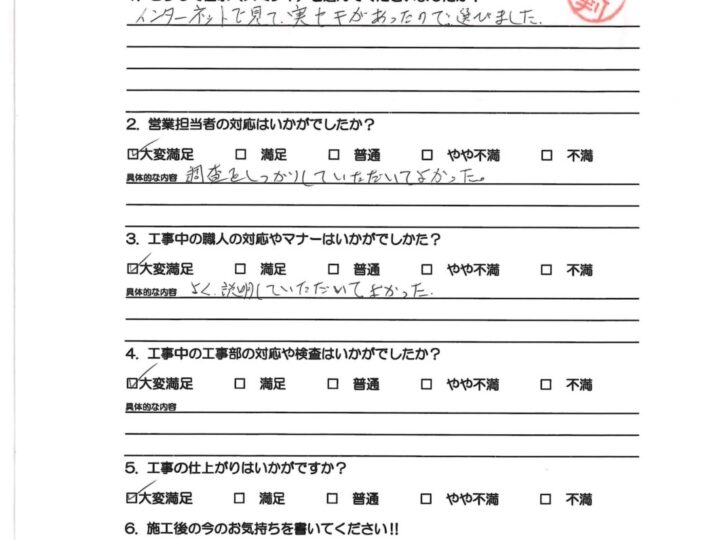 インターネットで見て、実セキがあったので、選びました。
2. 営業担当者の対応はいかがでしたか？
☑大変満足 □ 満足 □ 普通 □ やや不満 □ 不満
具体的な内容 調査をしっかりしていただいてよかった。
3. 工事中の職人の対応やマナーはいかがでしかた？
☑大変満足 □ 満足 □ 普通 □ やや不満 □ 不満
具体的な内容 よく、説明していただいてよかった。
4. 工事中の工事部の対応や検査はいかがでしたか？
☑大変満足 □ 満足 □ 普通 □ やや不満 □ 不満
具体的な内容
5. 工事の仕上がりはいかがですか？
☑大変満足 □ 満足 □ 普通 □ やや不満 □ 不満
6. 施工後の今のお気持ちを書いてください!!